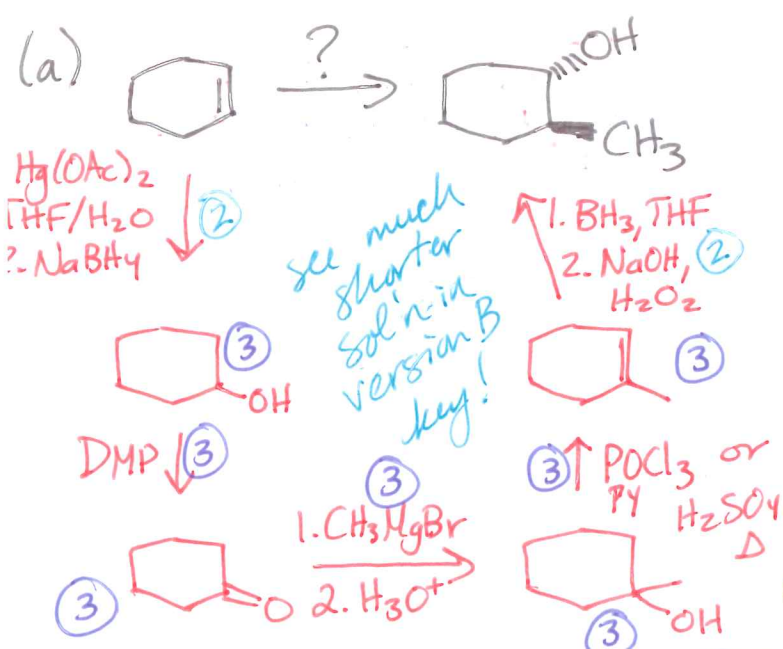 (a)
?
OH
CH3
Hg(OAc)2
THF/H2O
2. NaBH4
2
see much
shorter
sol'n in
version B
key!
1. BH3, THF
2. NaOH,
H2O2
2
3
OH
3
DMP
3
3
1. CH3MgBr
2. H3O+
3
POCl3 or
PY
H2SO4
Δ
3
O
OH
3